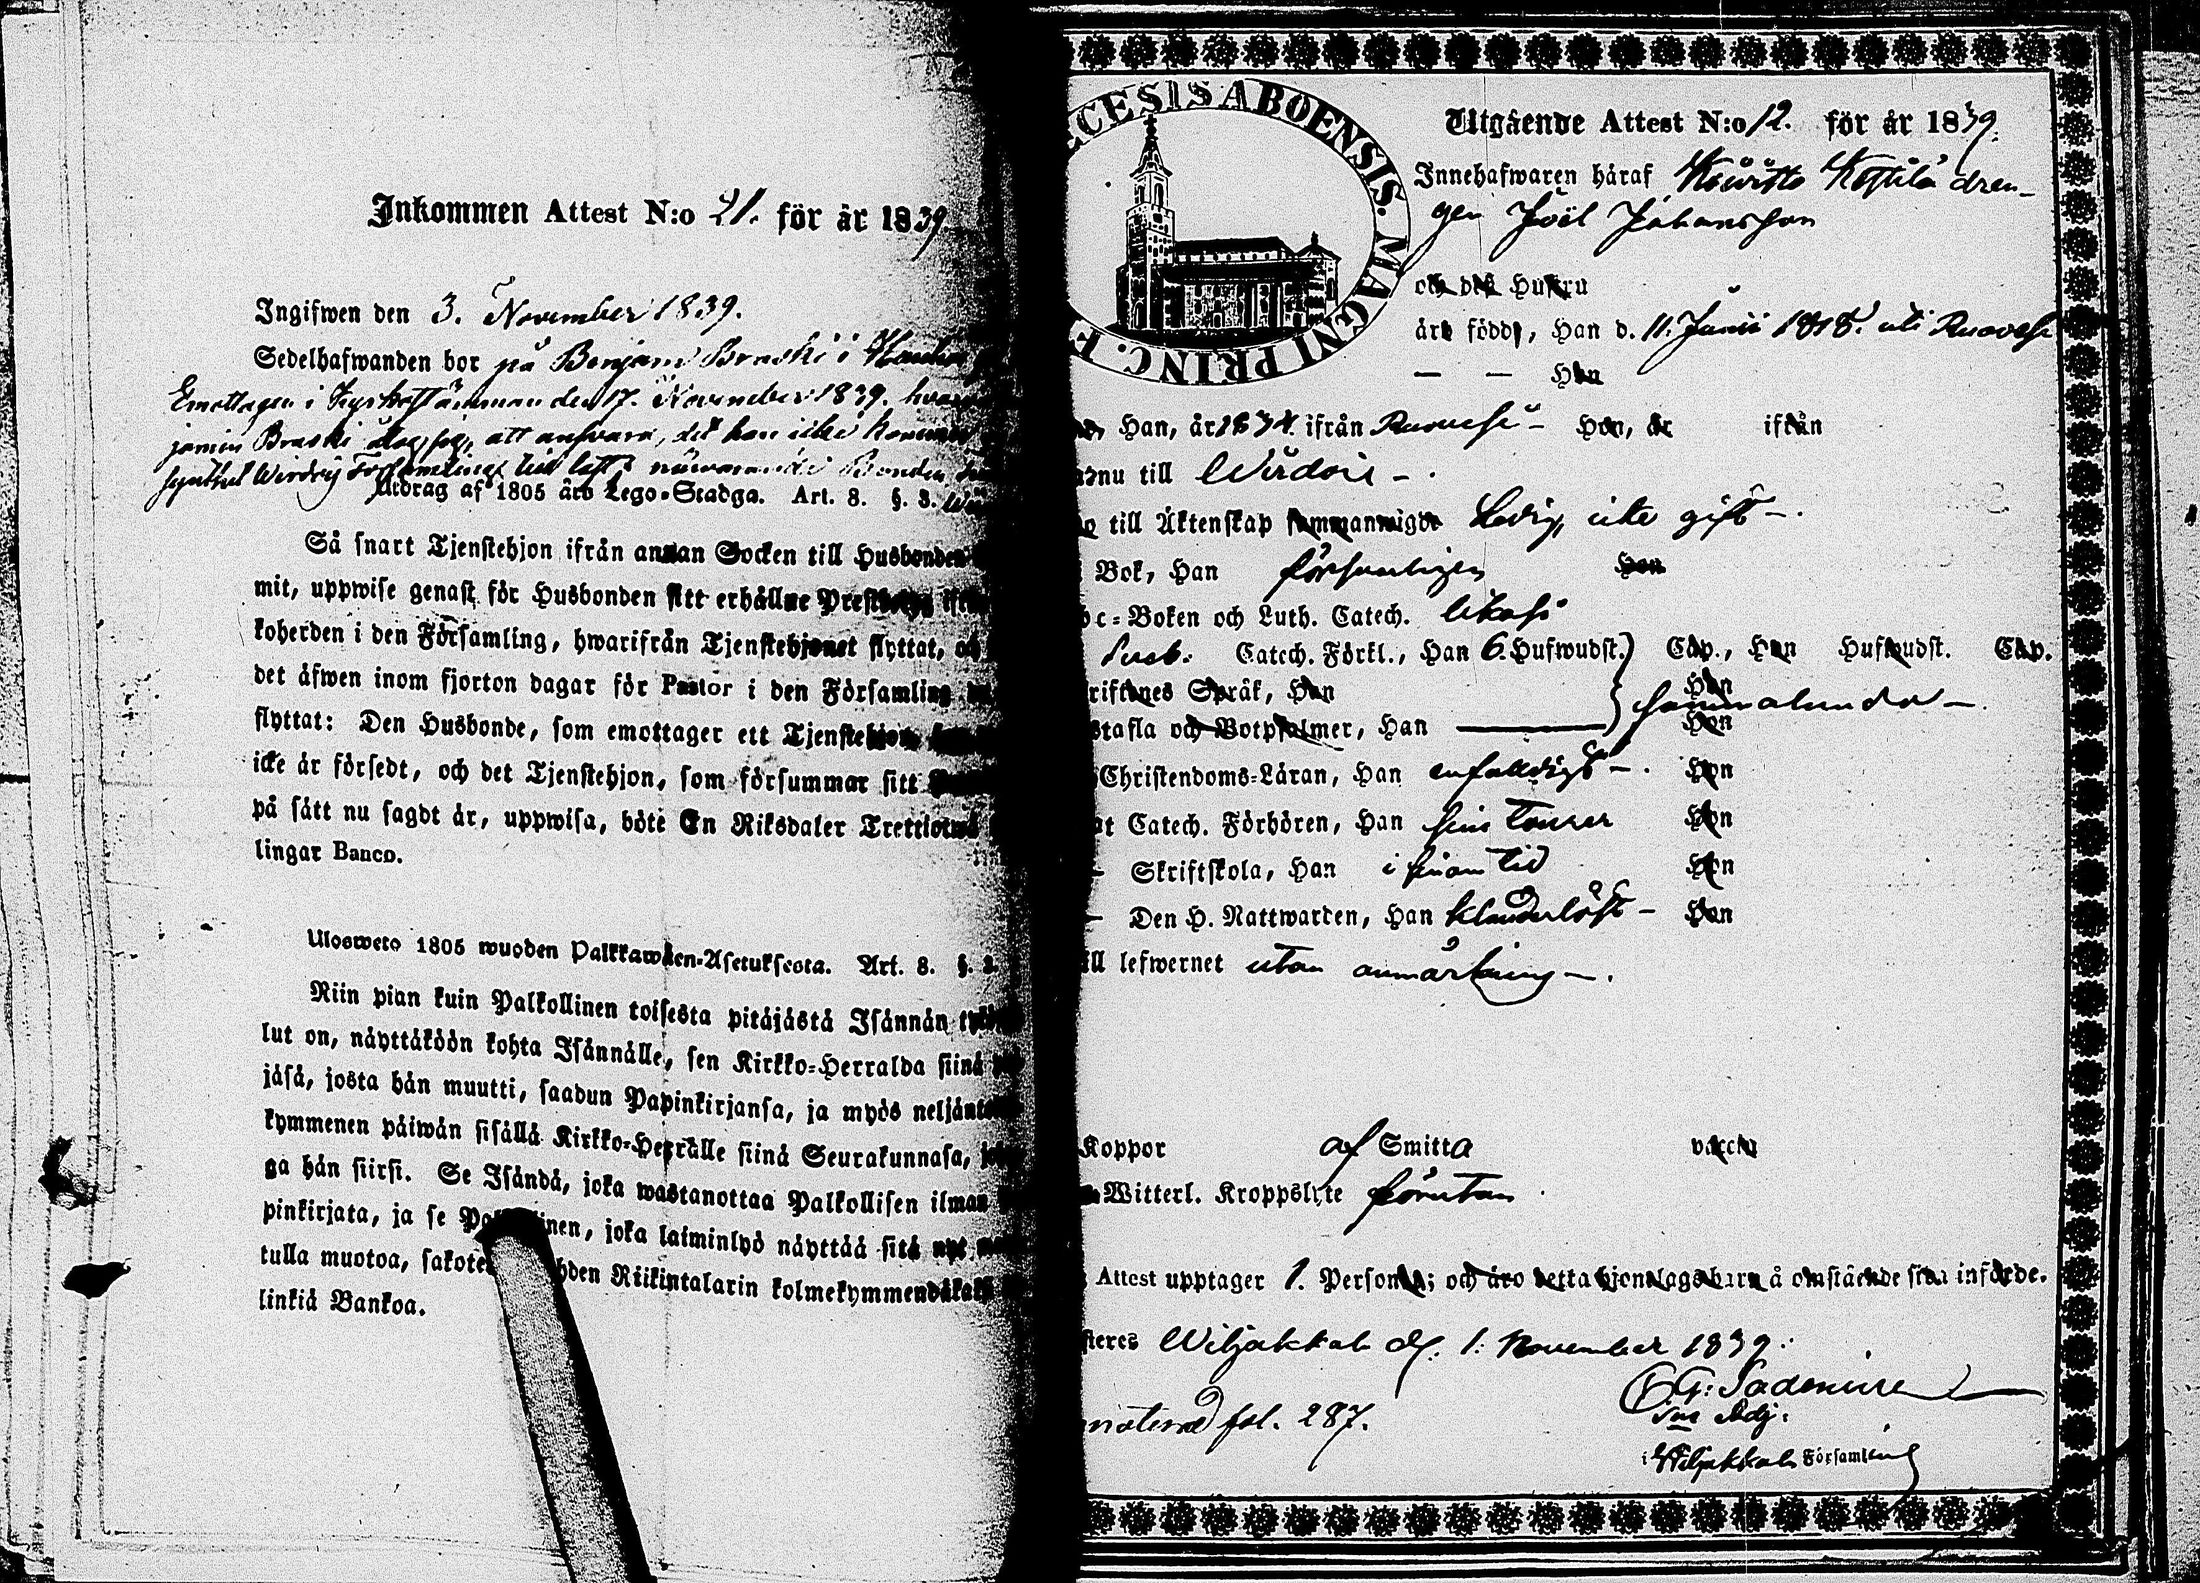 Inkommen Attest N:o 21. för år 1839.
Ingifwen den 3. November 1839.
Sedelhafwanden bor på Benjam Braski i
Emottagen i Kyrkostämman den 17. November 1839.
jamin Braski åtog sig, att ansvara, det han icke kommer
Utdrag af 1805 års Lego-Stadga. Art. 8. §. 3.
Så snart Tjenstehjon ifrån annan Socken till Husbonden
mit, uppwise genast för Husbonden sitt erhållne
koherden i den Församling, hwarifrån Tjenstehjonet flyttat,
det äfwen inom fjorton dagar för Pastor i den Församling
flyttat: Den Husbonde, som emottager ett Tjenstehjon,
icke är försedt, och det Tjenstehjon, som försummar sitt
på sått nu sagdt är, uppwisa, böte En Riksdaler
lingar Banco.
Ulosweto 1805 wuoden Palkkawäen-Asetuksesta. Art. 8. §. 3.
Niin pian kuin Palkollinen toisesta pitäjästä Isännän
lut on, näyttäköön kohta Isännälle, sen Kirkko-Herralda siinä
jäsä, josta hän muutti, saadun Papinkirjansa, ja myös
kymmenen päiwän sisällä Kirkko-Herralle siinä Seurakunnasa,
ga hän siirsi. Se Isändä, joka wastanottaa Palkollisen ilman
pinkirjata, ja se joka laiminlyö näyttää sitä nyt
tulla muotoa, Riikintalarin
linkiä Bankoa.
CESIS ABOENSIS. MAGNI PRINC. F
Utgående Attest N:o 12. för år 1839.
Innehafwaren häraf Kostila dren-
gen Joël Johansson
och des Hustru
äro födde, Han d. 11. Junii 1818. uti Ruovesi
— — Hon
Han, år 1834. ifrån Ruovesi - Hon, år ifrån
nu till Wirdois -.
till Äktenskap sammanwigde Ledig, icke gift -.
Bok, Han försvarligen Hon
bc-Boken och Luth. Catech. likaså
Sveb. Catech. Förkl., Han 6. Hufwudst. Cap., Hon Hufwudst. Cap.
riftenes Språk, Han Hon
stafla och Botpsalmer, Han Hon sammalunda -.
Christendoms-Läran, Han enfaldigt -. Hon
at Catech. Förhören, Han sine tourer Hon
- Skriftskola, Han i sinom tid Hon
- Den H. Nattwarden, Han klanderlöst - Hon
ill lefwernet utan anmärkning -.
Koppor af Smitta vaccin
Witterl. Kroppslyte förutan.
Attest upptager 1. Personer; och äro detta hjonelags barn å omstående sida införde.
steres Wiljakkala d. 1. November 1839.
fol. 287.
Adj.
i Wiljakkala Församling